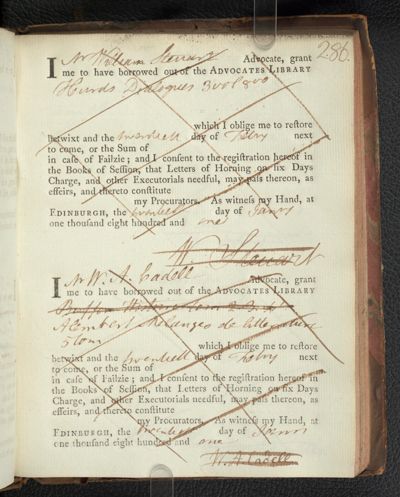 286.
I Mr William Steuart Advocate, grant
me to have borrowed out of the ADVOCATES LIBRARY
Hurds Dialogues 3 vol 8vo
which I oblige me to reſtore
betwixt and the twentieth day of Febry next
to come, or the Sum of
in caſe of Failzie; and I conſent to the regiſtration hereof in
the Books of Seſſion, that Letters of Horning on ſix Days
Charge, and other Executorials needful, may paſs thereon, as
effeirs, and thereto conſtitute
my Procurators. As witneſs my Hand, at
EDINBURGH, the twentieth day of Janry
one thouſand eight hundred and one
W. Steuart
I Mr W. A. Cadell Advocate, grant
me to have borrowed out of the ADVOCATES LIBRARY
Buffon
Alembert Melanges de litterature
5 tom
which I oblige me to reſtore
betwixt and the twentieth day of Febry next
to come, or the Sum of
in caſe of Failzie; and I conſent to the regiſtration hereof in
the Books of Seſſion, that Letters of Horning on ſix Days
Charge, and other Executorials needful, may paſs thereon, as
effeirs, and thereto conſtitute
my Procurators. As witneſs my Hand, at
EDINBURGH, the twentieth day of Janry
one thouſand eight hundred and one
W. A. Cadell